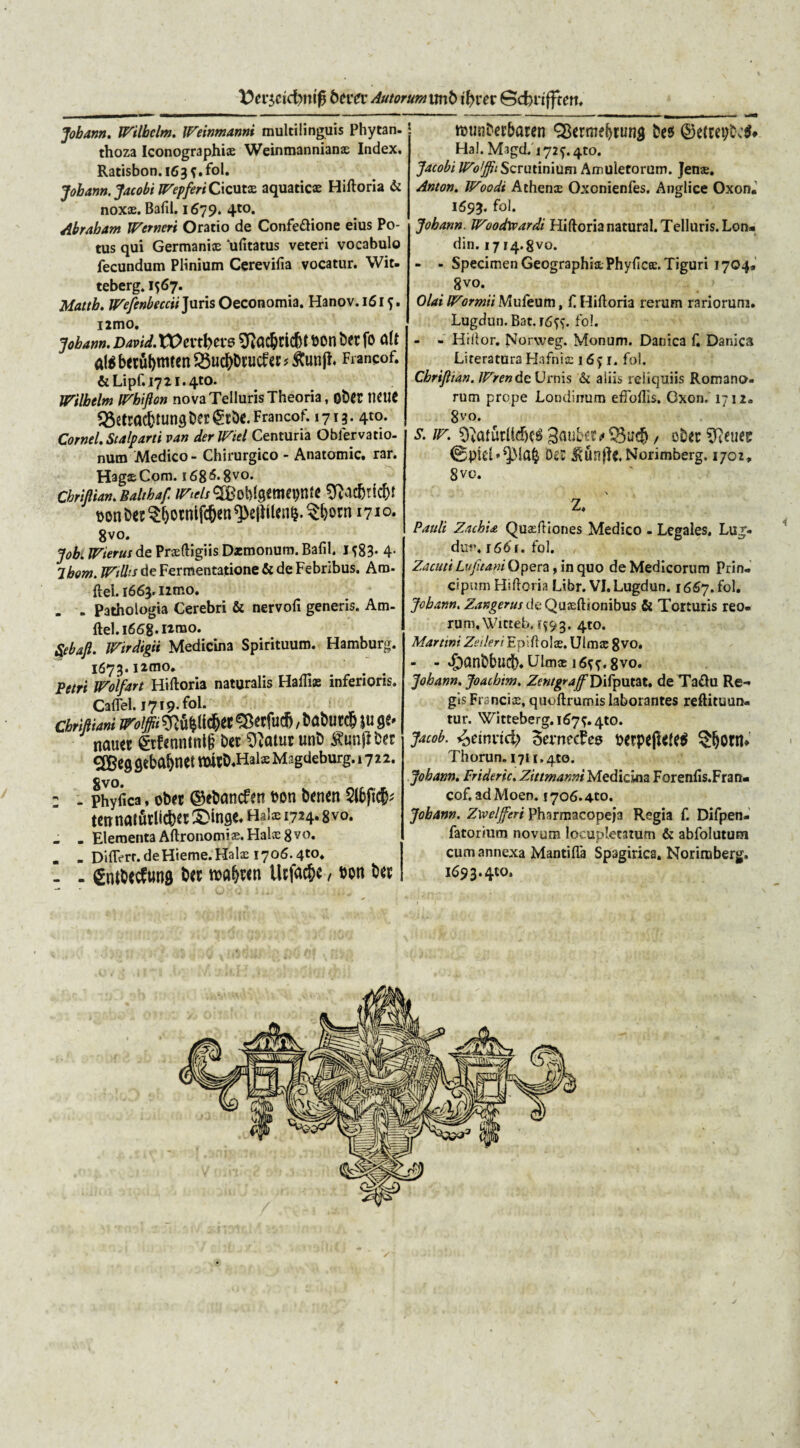 Verzeichniß derer Autorum und ihrer Schrifften.
Johann. Wilhelm. Weinmanni multilinguis Phytan-
thoza Iconographiæ Weinmannianæ Index.
Ratisbon. 1635. fol.
Johann. Jacobi Wepferi Cicutæ aquaticæ Historia &
noxæ. Basil. 1679. 4to.
Abraham Werneri Oratio de Confectione eius Po-
tus qui Germaniæ usitatus veteri vocabulo
secundum Plinium Cerevisia vocatur. Wit-
teberg. 1567.
Matth. Wesenbeccii Juris Oeconomia. Hanov. 1615.
12mo.
Johann. David. Werthers Nachricht von der so alt
als berühmten Buchdrucker-Kunst. Francof.
& Lips. 1721. 4to.
Wilhelm Whiston nova Telluris Theoria, oder neue
Betrachtung der Erde. Francof. 1713. 4to.
Cornel. Stalparti van der Wiel Centuria Observatio-
num Medico - Chirurgico - Anatomic. rar.
Hagæ Com. 1686. 8vo.
Christian. Balthas. Wiels Wohlgemeynte Nachricht
von der Thornischen Pestilentz. Thorn 1710.
8vo.
Joh. Wierus de Præstigiis Dæmonum. Basil. 1583. 4.
Thom. Willis de Fermentatione & de Febribus. Am-
stel. 1663. 12mo.
- - Pathologia Cerebri & nervosi generis. Am-
stel. 1668. 12mo.
Sebast. Wirdigii Medicina Spirituum. Hamburg.
1673. 12mo.
Petri Wolfart Historia naturalis Hassiæ inferioris.
Cassel. 1719. fol.
Christiani Wolffii Nützlicher Versuch, dadurch zu ge-
nauer Erkenntniß der Natur und Kunst der
Weg gebahnet wird. Halæ Magdeburg. 1722.
8vo.
- - Physica, oder Gedancken von denen Absich-
ten natürlicher Dinge. Halæ 1724. 8vo.
- - Elementa Astronomiæ. Halæ 8vo.
- - Dissert. de Hieme. Halæ 1706. 4to.
- - Entdeckung der wahren Ursache, von der
wunderbaren Vermehrung des Getreydes.
Hal. Magd. 1725. 4to.
Jacobi Wolffii Scrutinium Amuletorum. Jenæ.
Anton. Woodi Athenæ Oxonienses. Anglice Oxon.
1693. fol.
Johann. Woodwardi Historia natural. Telluris. Lon-
din. 1714. 8vo.
- - Specimen Geographiæ Physicæ. Tiguri 1704.
8vo.
Olai Wormii Museum, s. Historia rerum rariorum.
Lugdun. Bat. 1655. fol.
- - Histor. Norweg. Monum. Danica s. Danica
Literatura Hafniæ 1651. fol.
Christian. Wren de Urnis & aliis reliquiis Romano-
rum prope Londinum effossis. Oxon. 1712.
8vo.
S. W. Natürliches Zauber-Buch, oder Neuer
Spiel-Platz der Künste. Norimberg. 1702.
8vo.
Z.
Pauli Zachiæ Quæstiones Medico - Legales. Lug-
dun. 1661. fol.
Zacuti Lusitani Opera, in quo de Medicorum Prin-
cipum Historia Libr. VI. Lugdun. 1667. fol.
Johann. Zangerus de Quæstionibus & Torturis reo-
rum. Witteb. 1593. 4to.
Martini Zeileri Epistolæ. Ulmæ 8vo.
- - Handbuch. Ulmæ 1655. 8vo.
Johann. Joachim. Zentgraff Disputat. de Tactu Re-
gis Franciæ, quo strumis laborantes restituun-
tur. Witteberg. 1675. 4to.
Jacob. Heinrich Zerneckes verpestetes Thorn.
Thorun. 1711. 4to.
Johann. Frideric. Zittmanni Medicina Forensis. Fran-
cof. ad Moen. 1706. 4to.
Johann. Zwelfferi Pharmacopeja Regia s. Dispen-
satorium novum locupletatum & absolutum
cum annexa Mantissa Spagirica. Norimberg.
1693. 4to.